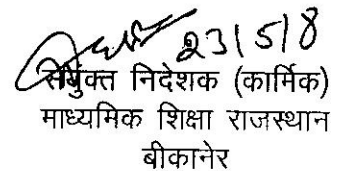 23/5/8
संयुक्त निदेशक (कार्मिक)
माध्यमिक शिक्षा राजस्थान
बीकानेर